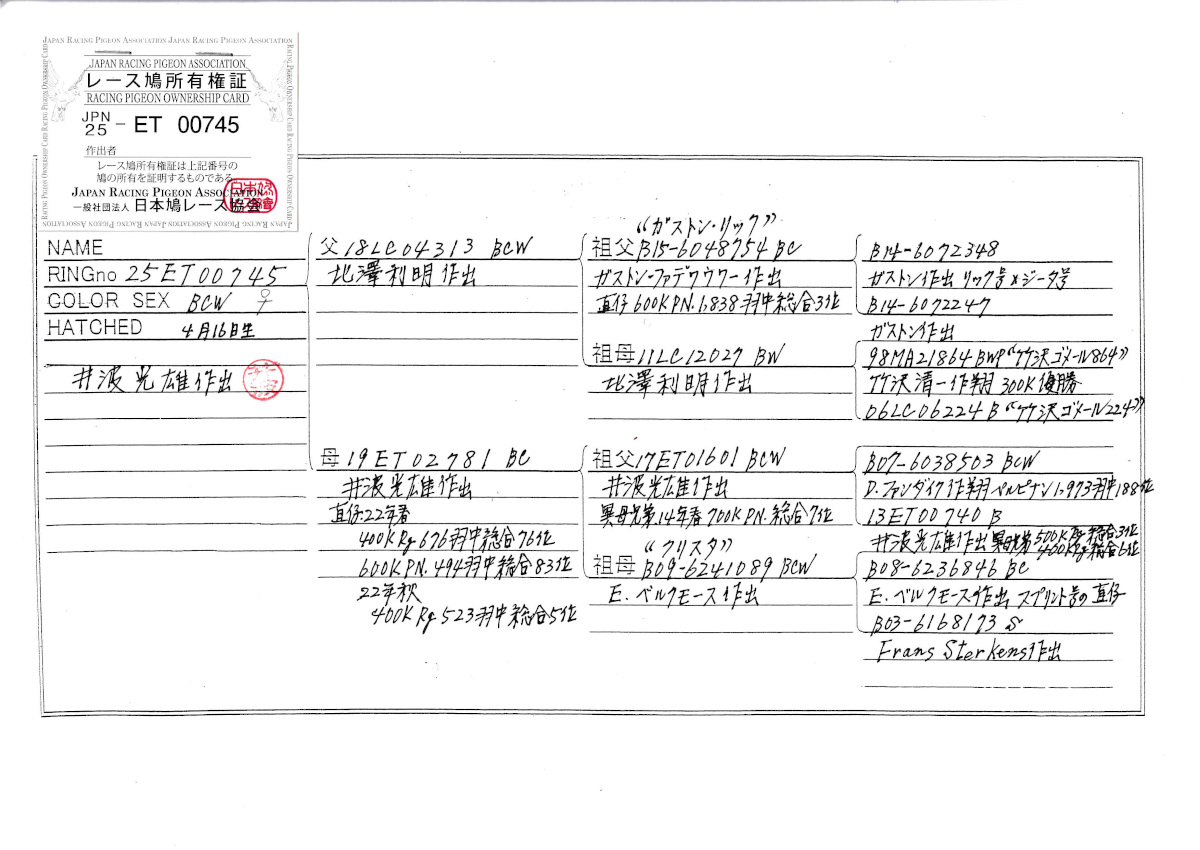 JAPAN RACING PIGEON ASSOCIATION JAPAN RACING PIGEON ASSOCIATION
JAPAN RACING PIGEON ASSOCIATION
レース鳩所有権証
RACING PIGEON OWNERSHIP CARD
JPN
25 - ET 00745
作出者
レース鳩所有権証は上記番号の
鳩の所有を証明するものである
JAPAN RACING PIGEON ASSOCIATION
一般社団法人 日本鳩レース協会
NAME
RINGno 25ET00745
COLOR SEX BCW ♀
HATCHED 4月16日生
井波光雄作出
父 18LC04313 BCW
北澤利明作出
母 19ET02781 BC
井波光雄作出
直仔.22年春
400K Rg 676羽中総合76位
600K PN.494羽中総合83位
22年秋
400K Rg 523羽中総合5位
“ガストン・リック”
祖父 B15-6048754 BC
ガストン・ファデワウワー作出
直仔600K PN.1,838羽中総合3位
祖母 11LC12027 BW
北澤利明作出
祖父 17ET01601 BCW
井波光雄作出
異母兄弟.14年春700K PN.総合7位
“クリスタ”
祖母 B09-6241089 BCW
E.ベルクモース作出
B14-6072348
ガストン作出 リック号×ジータ号
B14-6072247
ガストン作出
98MA21864 BWP “竹沢ゴメール864”
竹沢清一作翔 300K優勝
06LC06224 B “竹沢ゴメール224”
B07-6038503 BCW
D.ファンダイク作翔ペルピナン1,973羽中188位
13ET00740 B
井波光雄作出 異母兄弟 500K Rg 総合3位
400K Rg 総合6位
B08-6236846 BC
E.ベルクモース作出 スプリント号の直仔
B03-6168173 S
Frans Sterkens作出